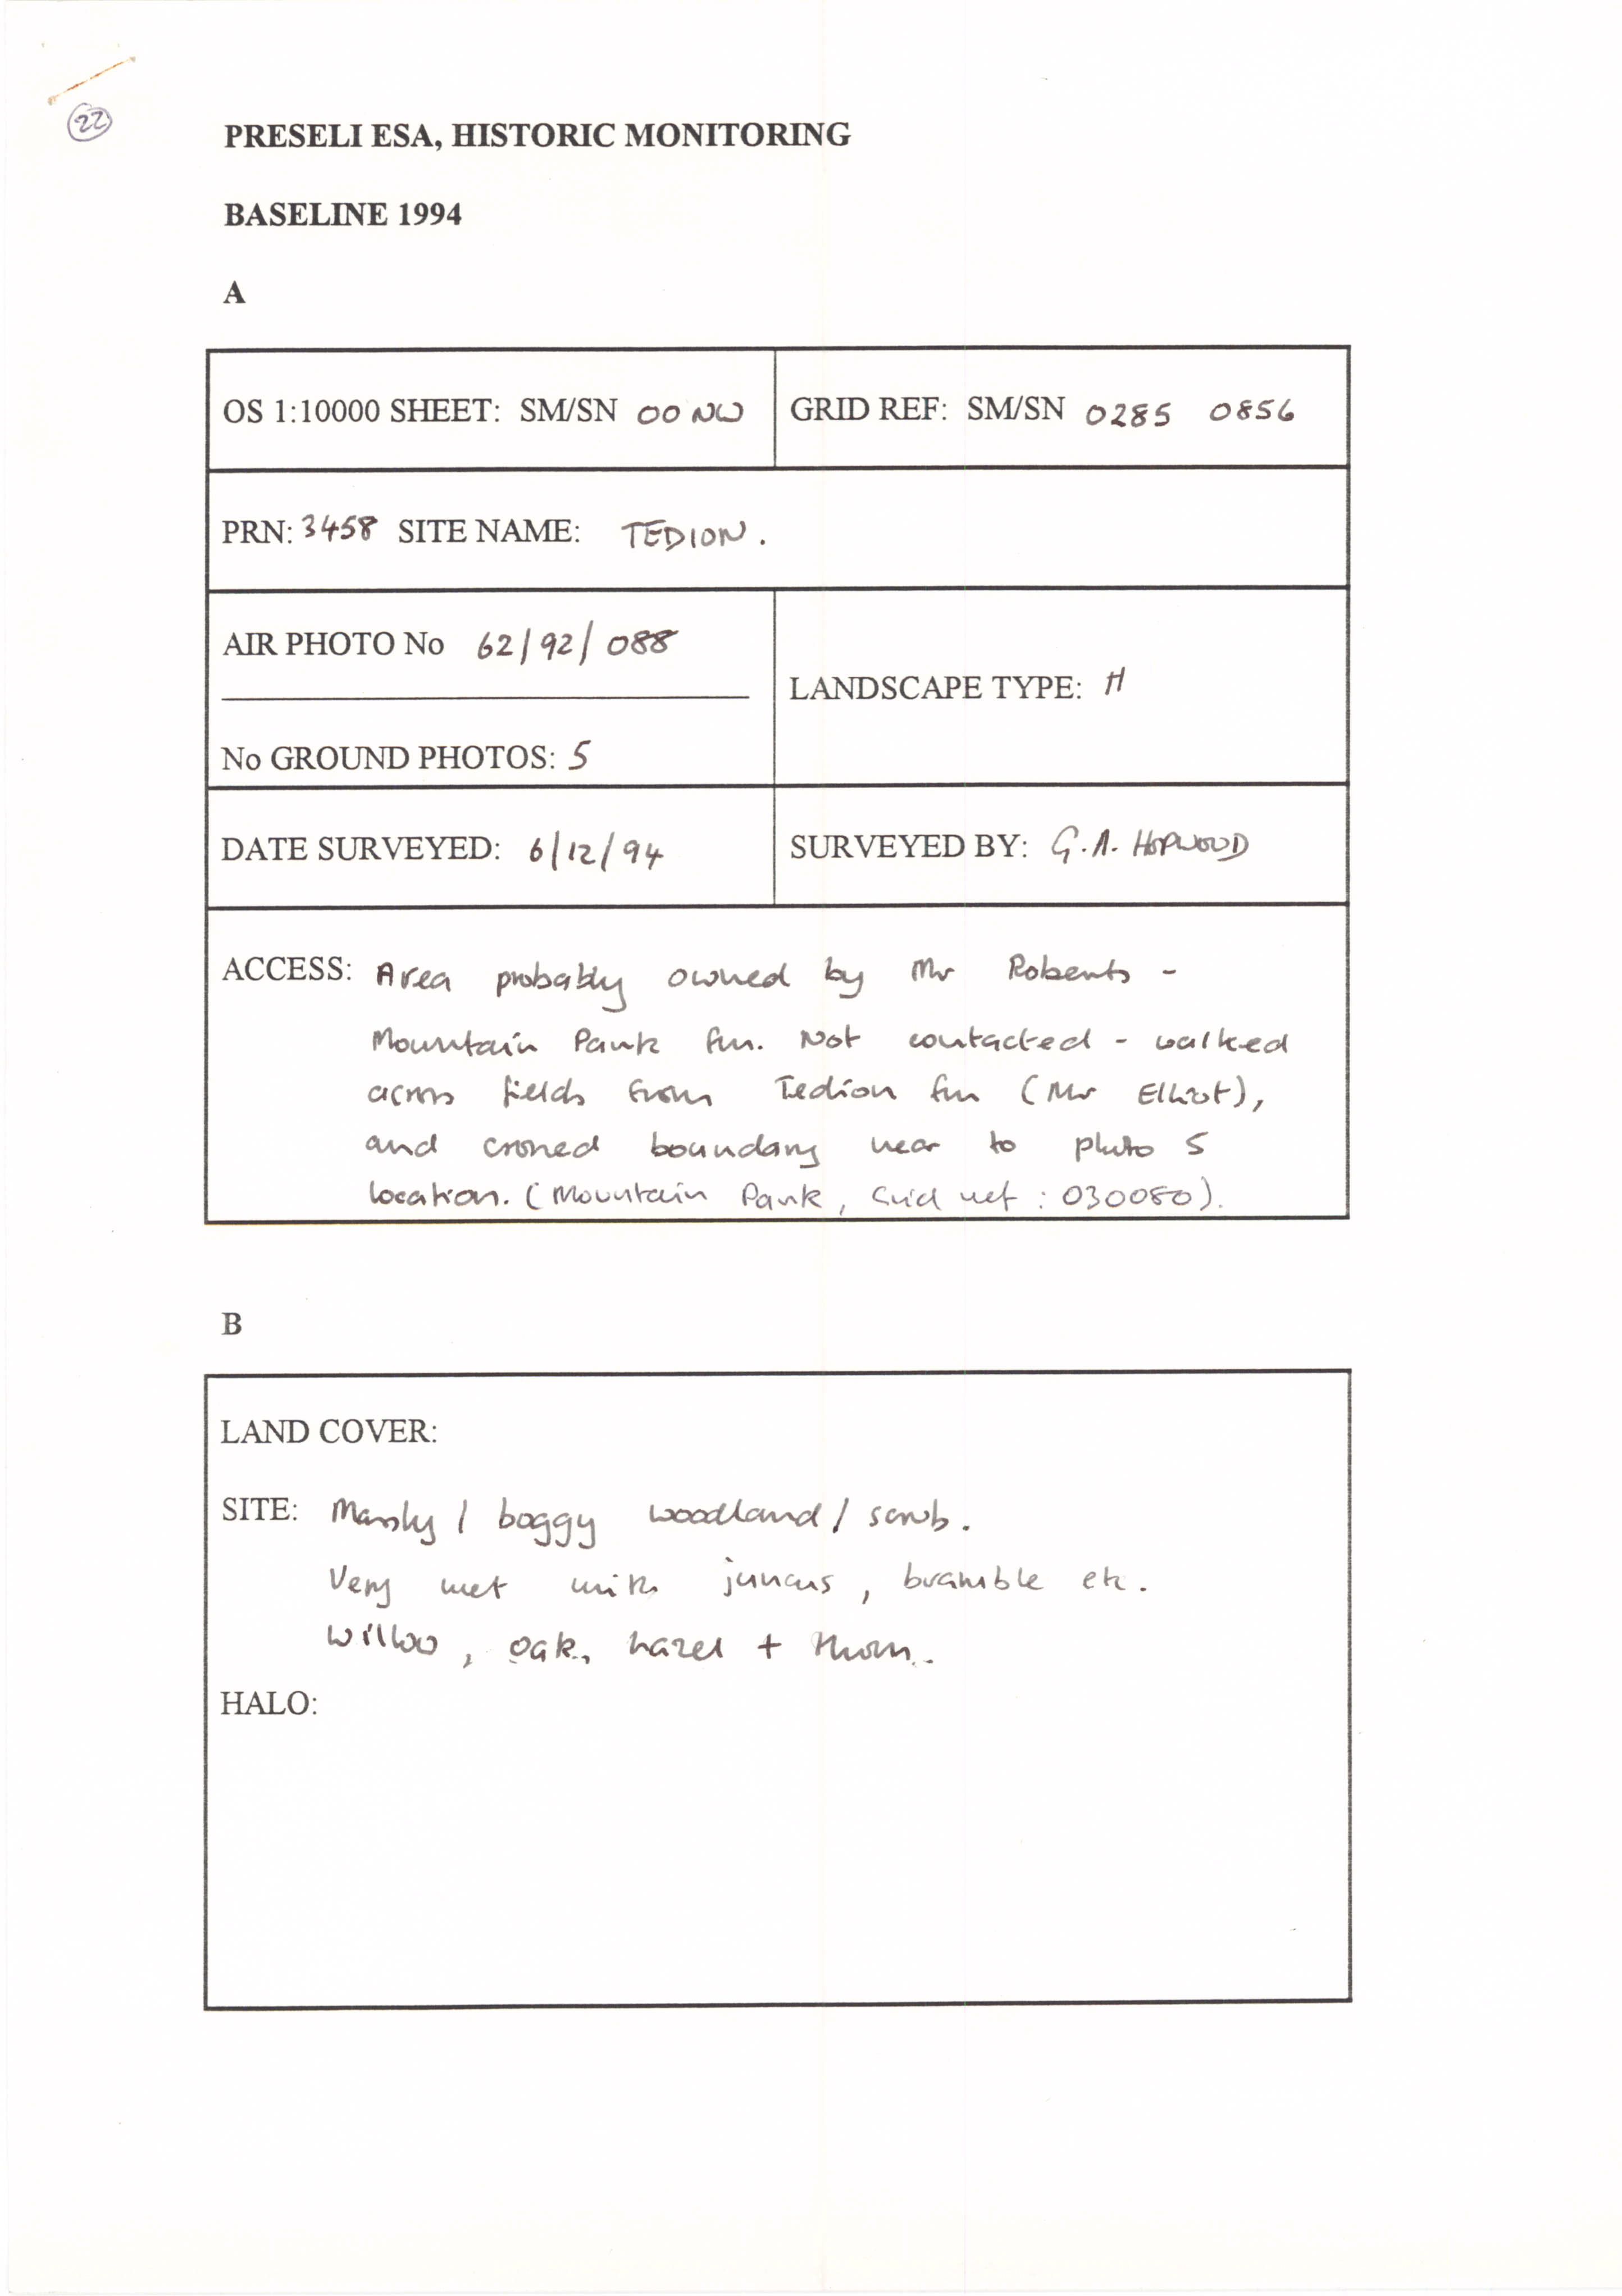 22
PRESELI ESA, HISTORIC MONITORING
BASELINE 1994
A
OS 1:10000 SHEET: SM/SN 00 NW
GRID REF: SM/SN 0285 0856
PRN: 3458 SITE NAME: TEDION.
AIR PHOTO No 62/92/088
LANDSCAPE TYPE: H
No GROUND PHOTOS: 5
DATE SURVEYED: 6/12/94
SURVEYED BY: G.A. HOPWOOD
ACCESS: Area probably owned by Mr Roberts -
Mountain Park fm. Not contacted - walked
across fields from Tedion fm (Mr Elliot),
and crossed boundary near to photo 5
location. (Mountain Park, Grid ref: 030080).
B
LAND COVER:
SITE: Marshy / boggy woodland / scrub.
Very wet with juncus, bramble etc.
Willow, oak, hazel + thorn.
HALO: